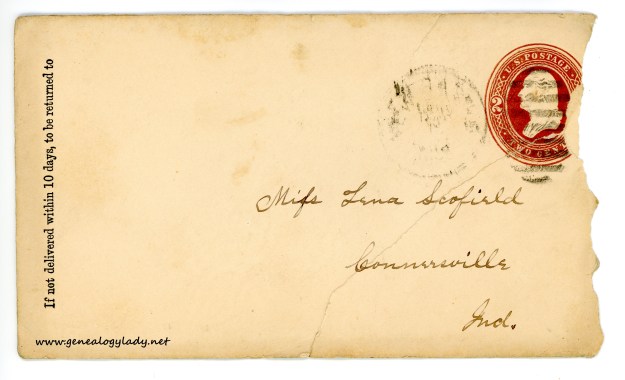 If not delivered within 10 days, to be returned to
U.S. POSTAGE
TWO CEN
2
Miss Lena Scofield
Connersville
Ind.
www.genealogylady.net